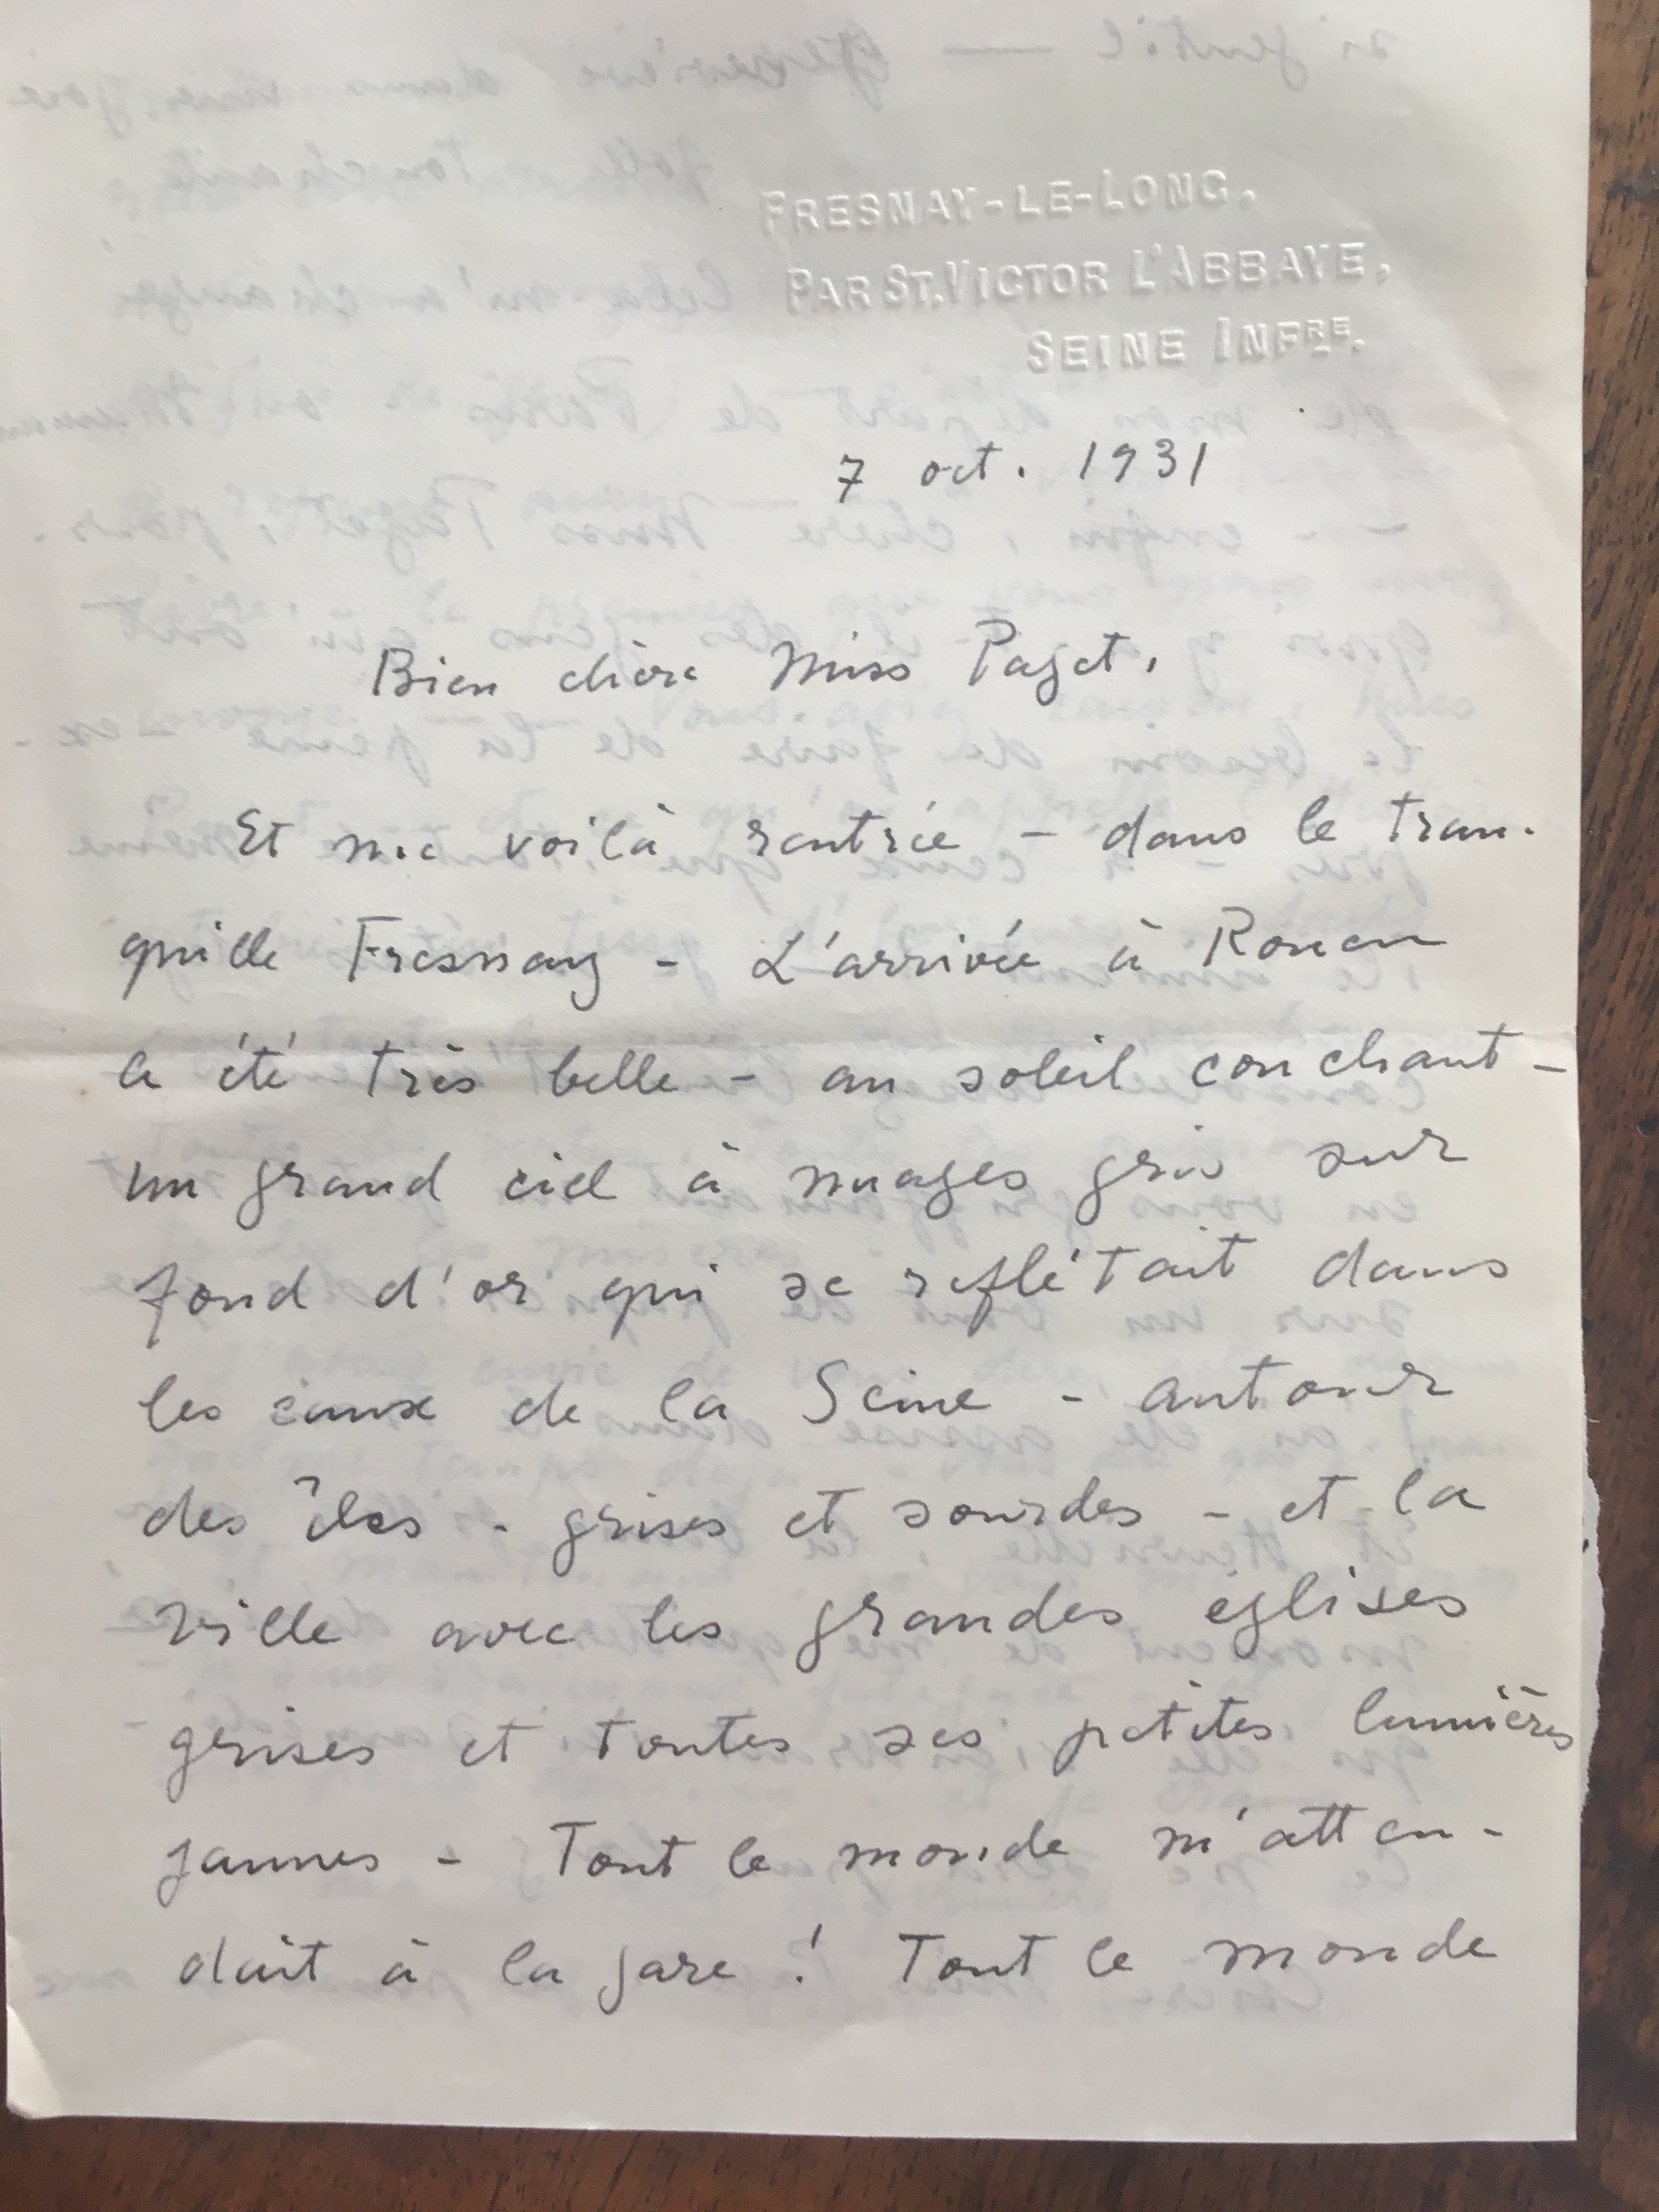 FRESNAY-LE-LONG.
PAR ST. VICTOR L'ABBAYE.
SEINE INFRE.
7 oct. 1931
Bien chère Miss Paget,
Et me voilà rentrée - dans le tran-
quille Fresnay - L'arrivée à Rouen
a été très belle - au soleil couchant -
un grand ciel à nuages gris sur
fond d'or qui se reflétait dans
les eaux de la Seine - autour
des îles - grises et sourdes - et la
ville avec les grandes églises
grises et toutes ses petites lumières
jaunes - Tout le monde m'atten-
dait à la gare ! Tout le monde